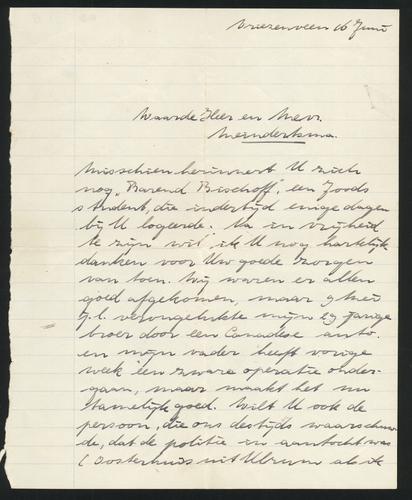 Vriezenveen 16 Juni
Waarde Heer en Mevr.
Meindertsma.
Misschien herinnert U zich
nog "Barend Bischoff", een Joods
student, die indertijd enige dagen
bij U logeerde. Na in vrijheid
te zijn wil ik U nog hartelijk
danken voor Uw goede zorgen
van toen. Wij waren er allen
goed afgekomen, maar 9 Mei
j.l. verongelukte mijn 19 jarige
broer door een Canadese auto.
en mijn vader heeft vorige
week een zware operatie onder-
gaan, maar maakt het nu
tamelijk goed. Wilt U ook de
persoon, die ons destijds waarschuw-
de, dat de politie in aantocht was
( Oosterhuis uit Ulrum als ik